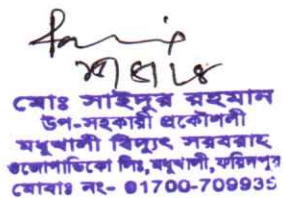 মোঃ সাইদুর রহমান
উপ-সহকারী প্রকৌশলী
মধুখালী বিদ্যুৎ সরবরাহ
ওজোপাডিকো লিঃ, মধুখালী, ফরিদপুর
মোবাঃ নং- 01700-709935